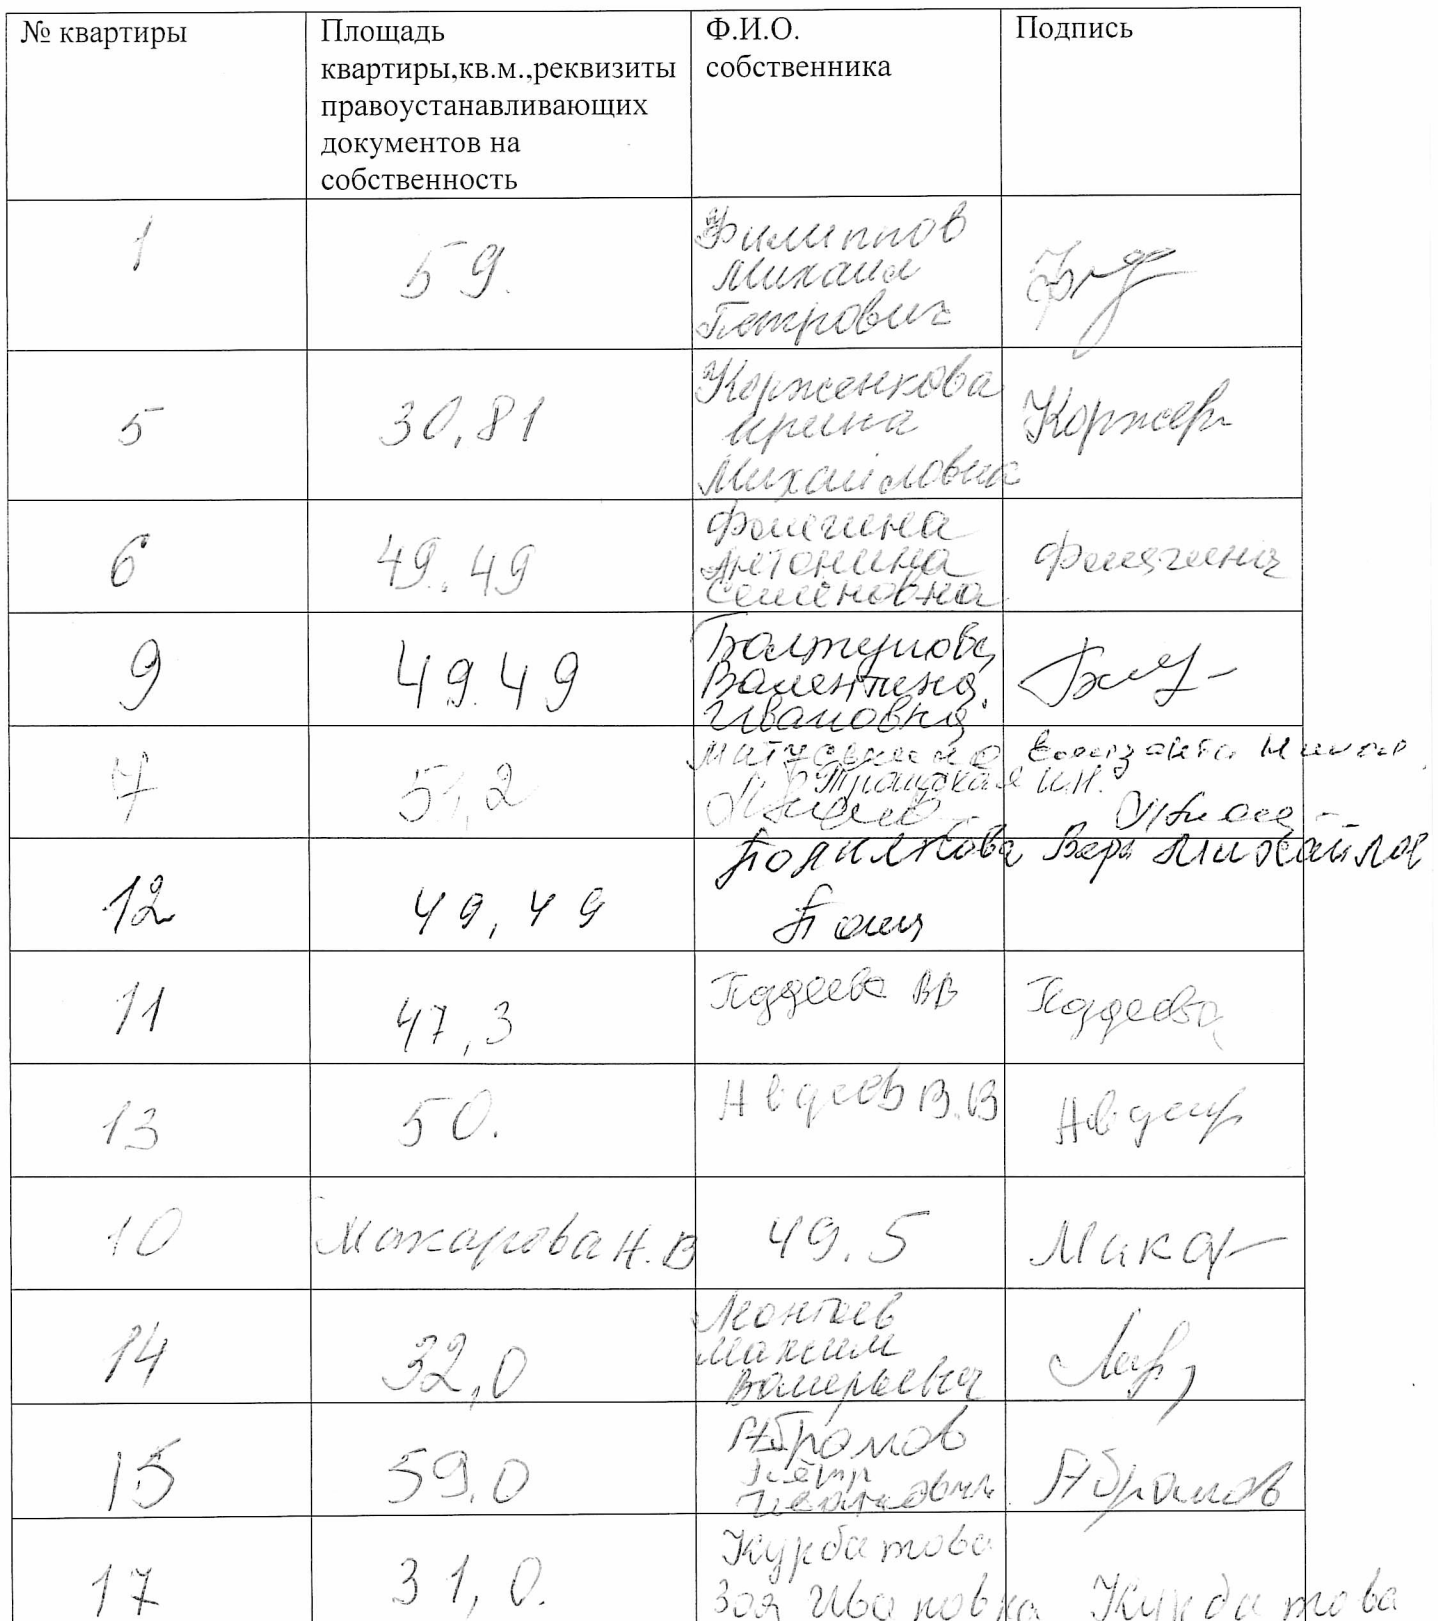 № квартиры
Площадь
квартиры,кв.м.,реквизиты
правоустанавливающих
документов на
собственность
Ф.И.О.
собственника
Подпись
1
59.
Филиппов
Михаил
Петрович
5
30,81
Корженкова
Ирина
Михайловна
6
49.49
Фомичева
Антонина
Семеновна
9
49.49
Болтунова
Валентина
Ивановна
7
51,2
Троицкая И.Н.
12
49,49
Вера Михайлов
11
47,3
13
50.
Авдеев В.В
10
Макарова Н.В
49.5
Макар
14
32,0
Леонтьев
Максим
Валерьевич
15
59,0
Абрамов
Пётр
Иванович
Абрамов
17
31,0.
Курбатова
Зоя Ивановна
Курбатова